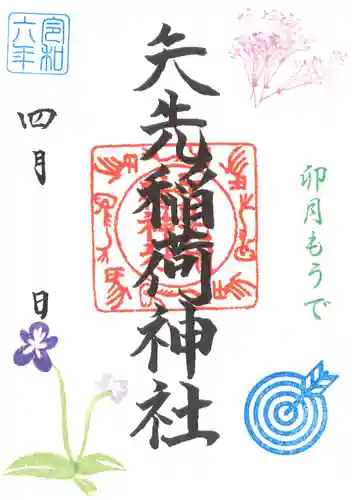 令和
六年
四月 日
矢先稲荷神社
卯月もうで